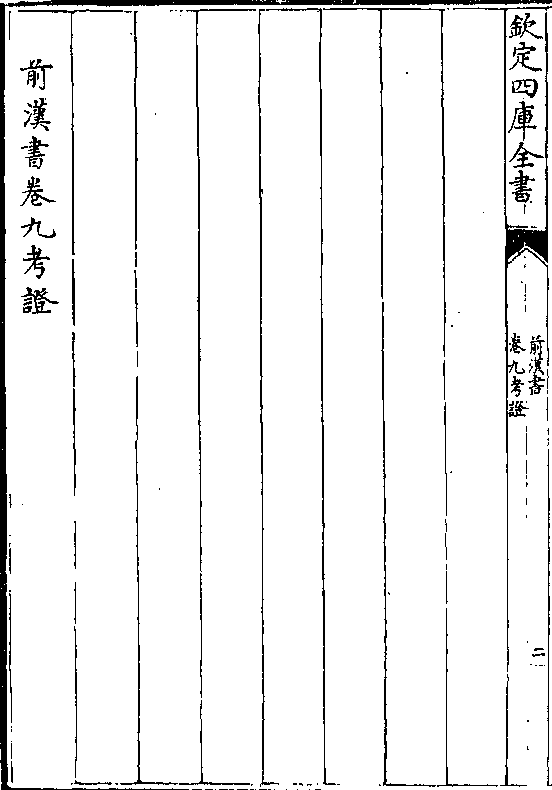 欽定四庫全書
前漢書
卷九考證
二
前漢書卷九考證